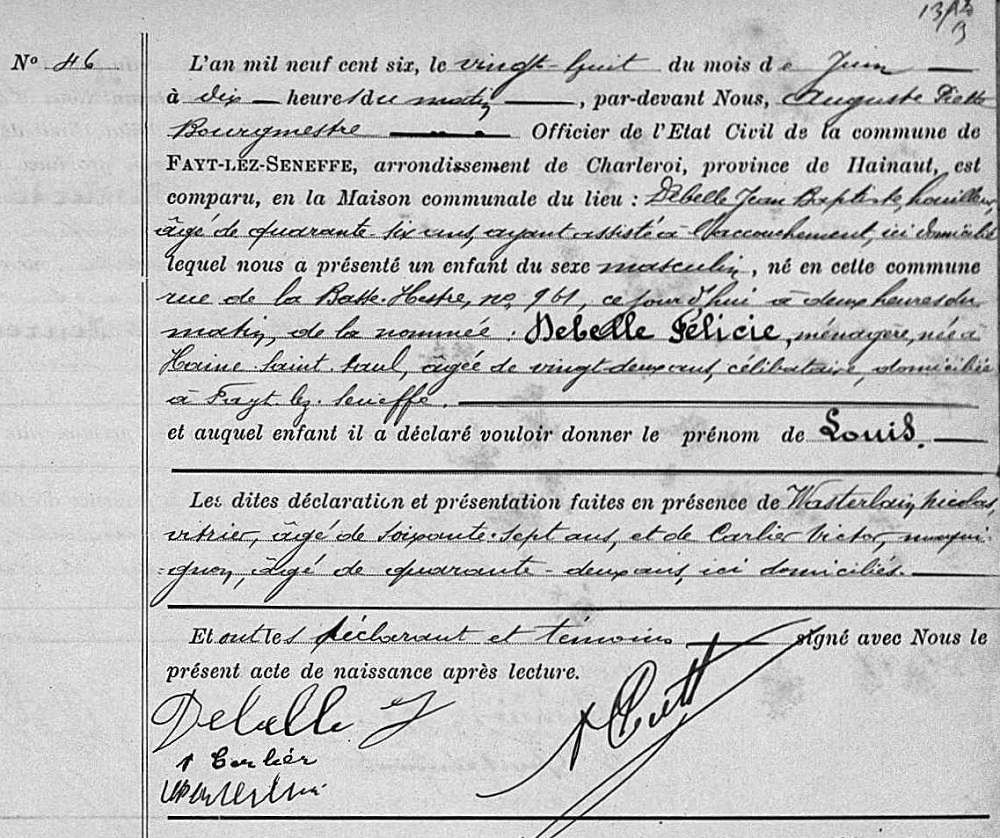 13/12
3
N° 46
L'an mil neuf cent six, le vingt-huit du mois de Juin
à dix heures du matin, par-devant Nous, Auguste Piette
Bourgmestre Officier de l'Etat Civil de la commune de
FAYT-LEZ-SENEFFE, arrondissement de Charleroi, province de Hainaut, est
comparu, en la Maison communale du lieu : Debelle Jean Baptiste, houilleur,
âgé de quarante-six ans, ayant assisté à l'accouchement, ici domicilié
lequel nous a présenté un enfant du sexe masculin, né en cette commune
rue de la Basse-Hestre, no 961, ce jour d'hui à deux heures du
matin, de la nommée : Debelle Félicie, ménagère, née à
Haine-Saint-Paul, âgée de vingt-deux ans, célibataire, domiciliée
à Fayt-lez-Seneffe.
et auquel enfant il a déclaré vouloir donner le prénom de Louis.
Les dites déclaration et présentation faites en présence de Wasterlain, Nicolas,
vitrier, âgé de soixante-sept ans, et de Carlier Victor, maqui-
gnon, âgé de quarante-deux ans, ici domiciliés.
Et ont les déclarant et témoins signé avec Nous le
présent acte de naissance après lecture.
Debelle J
Carlier
Wasterlain